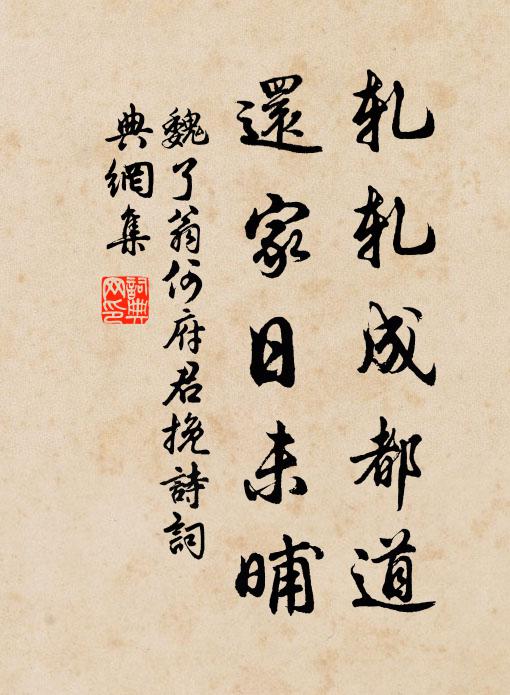 軋軋成都道
還家日未晡
魏了翁何府君挽詩詞
典網集
詞典
网印